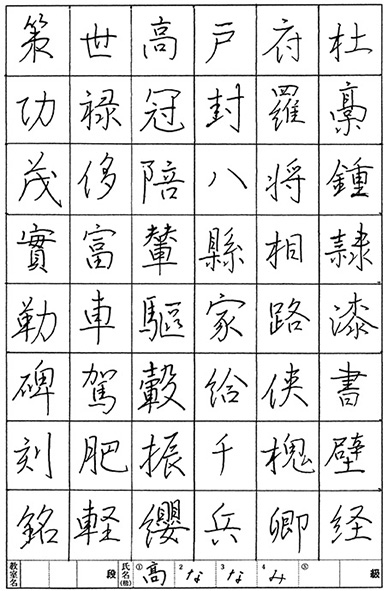 杜稾鍾隷漆書壁経
府羅将相路侠槐卿
戸封八縣家給千兵
高冠陪輦驅轂振纓
世禄侈富車駕肥軽
策功茂實勒碑刻銘
教室名 段 氏名(独) ① 高 2 な 3 な 4 み ⑤ 級